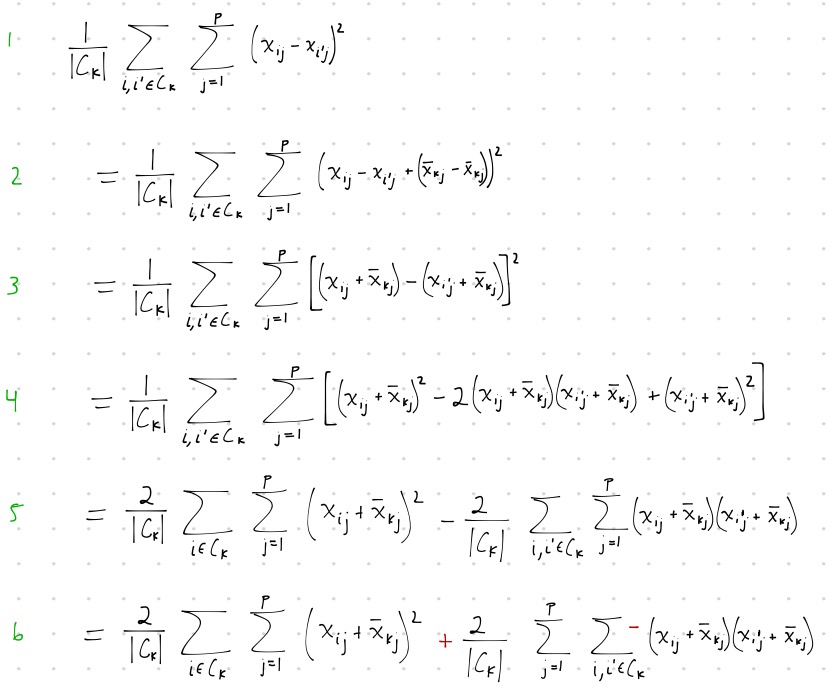 1 \frac{1}{|C_K|} \sum_{i,i' \in C_K} \sum_{j=1}^{P} (x_{ij} - x_{i'j})^2
2 = \frac{1}{|C_K|} \sum_{i,i' \in C_K} \sum_{j=1}^{P} (x_{ij} - x_{i'j} + (\bar{x}_{kj} - \bar{x}_{kj}))^2
3 = \frac{1}{|C_K|} \sum_{i,i' \in C_K} \sum_{j=1}^{P} [(x_{ij} + \bar{x}_{kj}) - (x_{i'j} + \bar{x}_{kj})]^2
4 = \frac{1}{|C_K|} \sum_{i,i' \in C_K} \sum_{j=1}^{P} [(x_{ij} + \bar{x}_{kj})^2 - 2(x_{ij} + \bar{x}_{kj})(x_{i'j} + \bar{x}_{kj}) + (x_{i'j} + \bar{x}_{kj})^2]
5 = \frac{2}{|C_K|} \sum_{i \in C_K} \sum_{j=1}^{P} (x_{ij} + \bar{x}_{kj})^2 - \frac{2}{|C_K|} \sum_{i,i' \in C_K} \sum_{j=1}^{P} (x_{ij} + \bar{x}_{kj})(x_{i'j} + \bar{x}_{kj})
6 = \frac{2}{|C_K|} \sum_{i \in C_K} \sum_{j=1}^{P} (x_{ij} + \bar{x}_{kj})^2 + \frac{2}{|C_K|} \sum_{j=1}^{P} \sum_{i,i' \in C_K} - (x_{ij} + \bar{x}_{kj})(x_{i'j} + \bar{x}_{kj})